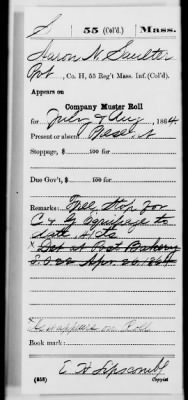 S 55 (Col'd.) Mass.
Aaron N. Saulter
Pvt, Co. H, 55 Reg't Mass. Inf. (Col'd).
Appears on
Company Muster Roll
for July & Aug, 1864
Present or absent Present
Stoppage, $ 100 for
Due Gov't, $ 100 for
Remarks: Free Stop for
C & G Equipage to
date
x Det at Post Bakery
S.O 22 Apr. 26.1864
x So appears on Roll
Book mark:
E W Lipscomb
(358) Copyist